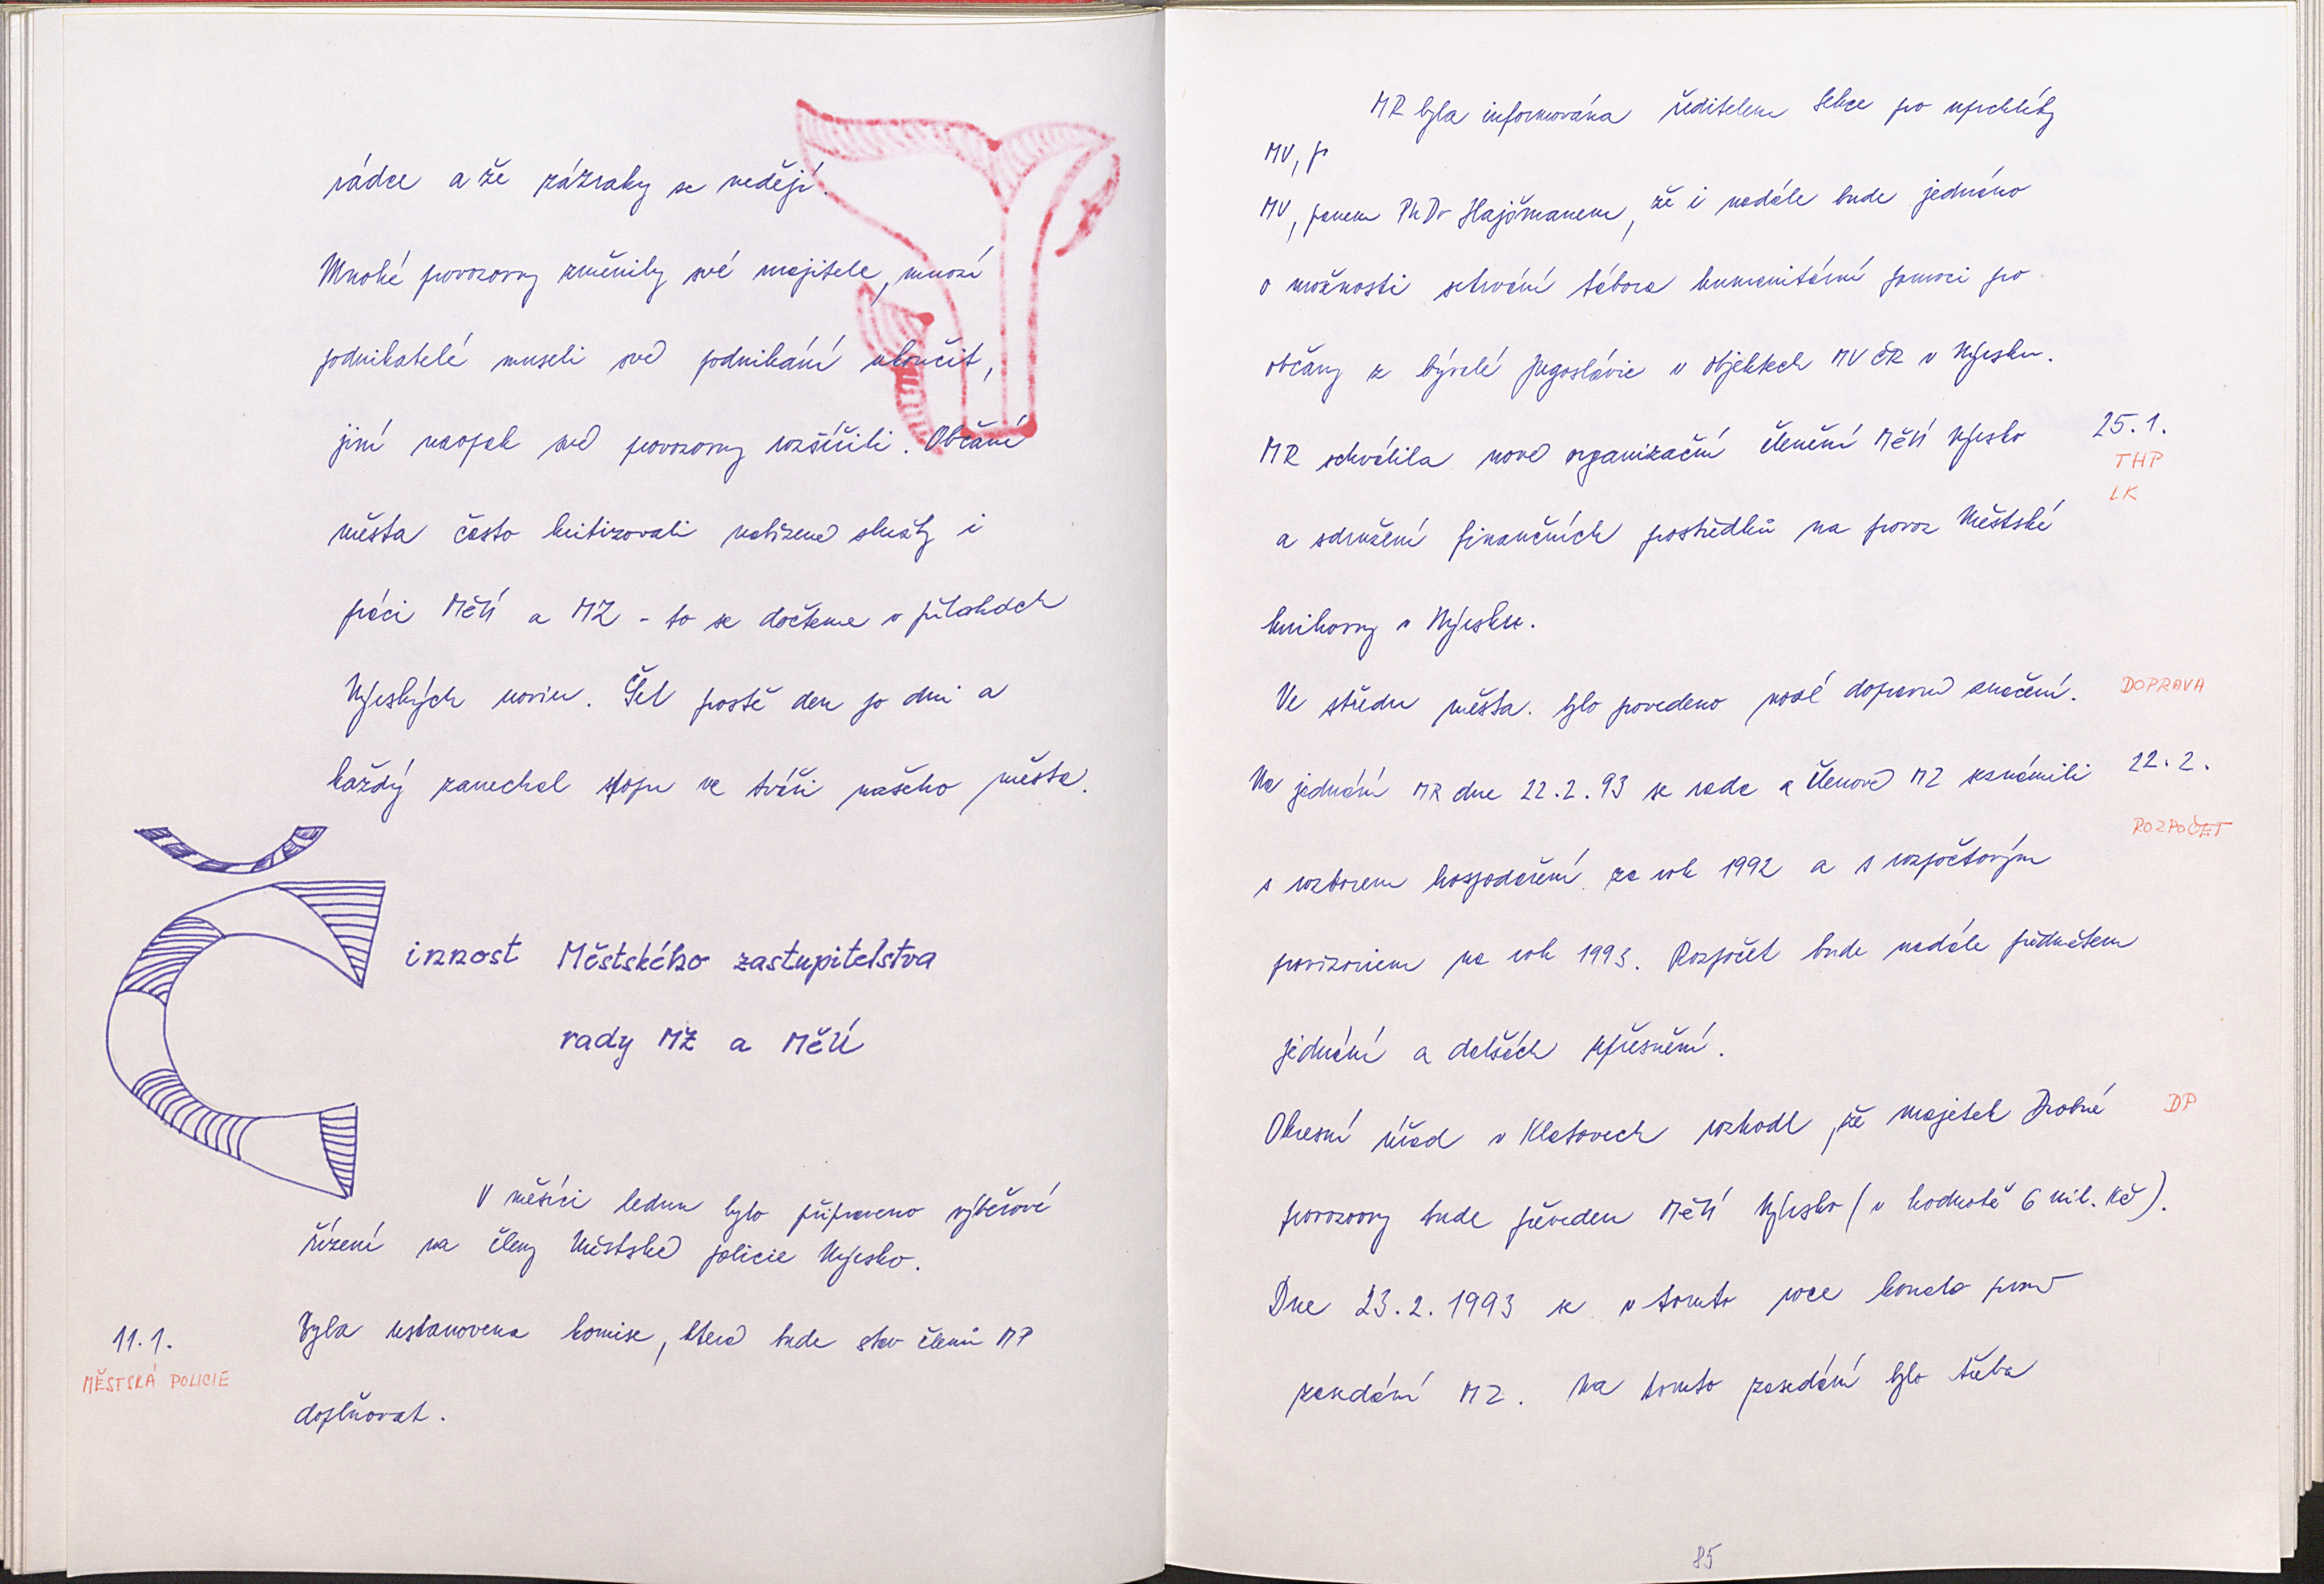 rádce a že zázraky se nedějí.
Mnohé provozovny změnily své majitele, mnozí
podnikatelé museli své podnikání ukončit,
jiní naopak své provozovny rozšířili. Občané
města často kritizovali nabízené služby i
práci MěÚ a MZ - to se dočteme v přílohách
Nýrských novin. Šel prostě den po dni a
každý zanechal stopu ve tváři našeho města.
Činnost Městského zastupitelstva
rady MZ a MěÚ
V měsíci lednu bylo připraveno výběrové
řízení na členy Městské policie Nýrsko.
11.1.
MĚSTSKÁ POLICIE
Byla ustanovena komise, která bude stav členů MP
doplňovat.
MR byla informována ředitelem Sekce po uprchlíky
MV, p
MV, panem PhDr Hajčmanem, že i nadále bude jednáno
o možnosti setrvání tábora humanitární pomoci po
občany z bývalé Jugoslávie v objektech MV ČR v Nýrsku.
MR schválila nové organizační členění MěÚ Nýrsko
25.1.
THP
LK
a sdružení finančních prostředků na provoz Městské
knihovny v Nýrsku.
Ve středu města bylo provedeno nové dopravní značení.
DOPRAVA
Na jednání MR dne 22.2.93 se rada a členové MZ seznámili
22.2.
ROZPOČET
s rozborem hospodaření za rok 1992 a s rozpočtovým
provizoriem na rok 1993. Rozpočet bude nadále předmětem
jednání a dalších upřesnění.
Okresní úřad v Klatovech rozhodl, že majetek Drobné
DP
provozovny bude převeden MěÚ Nýrsko (v hodnotě 6 mil. Kč).
Dne 23.2.1993 se v tomto roce konalo první
zasedání MZ. Na tomto zasedání bylo třeba
85